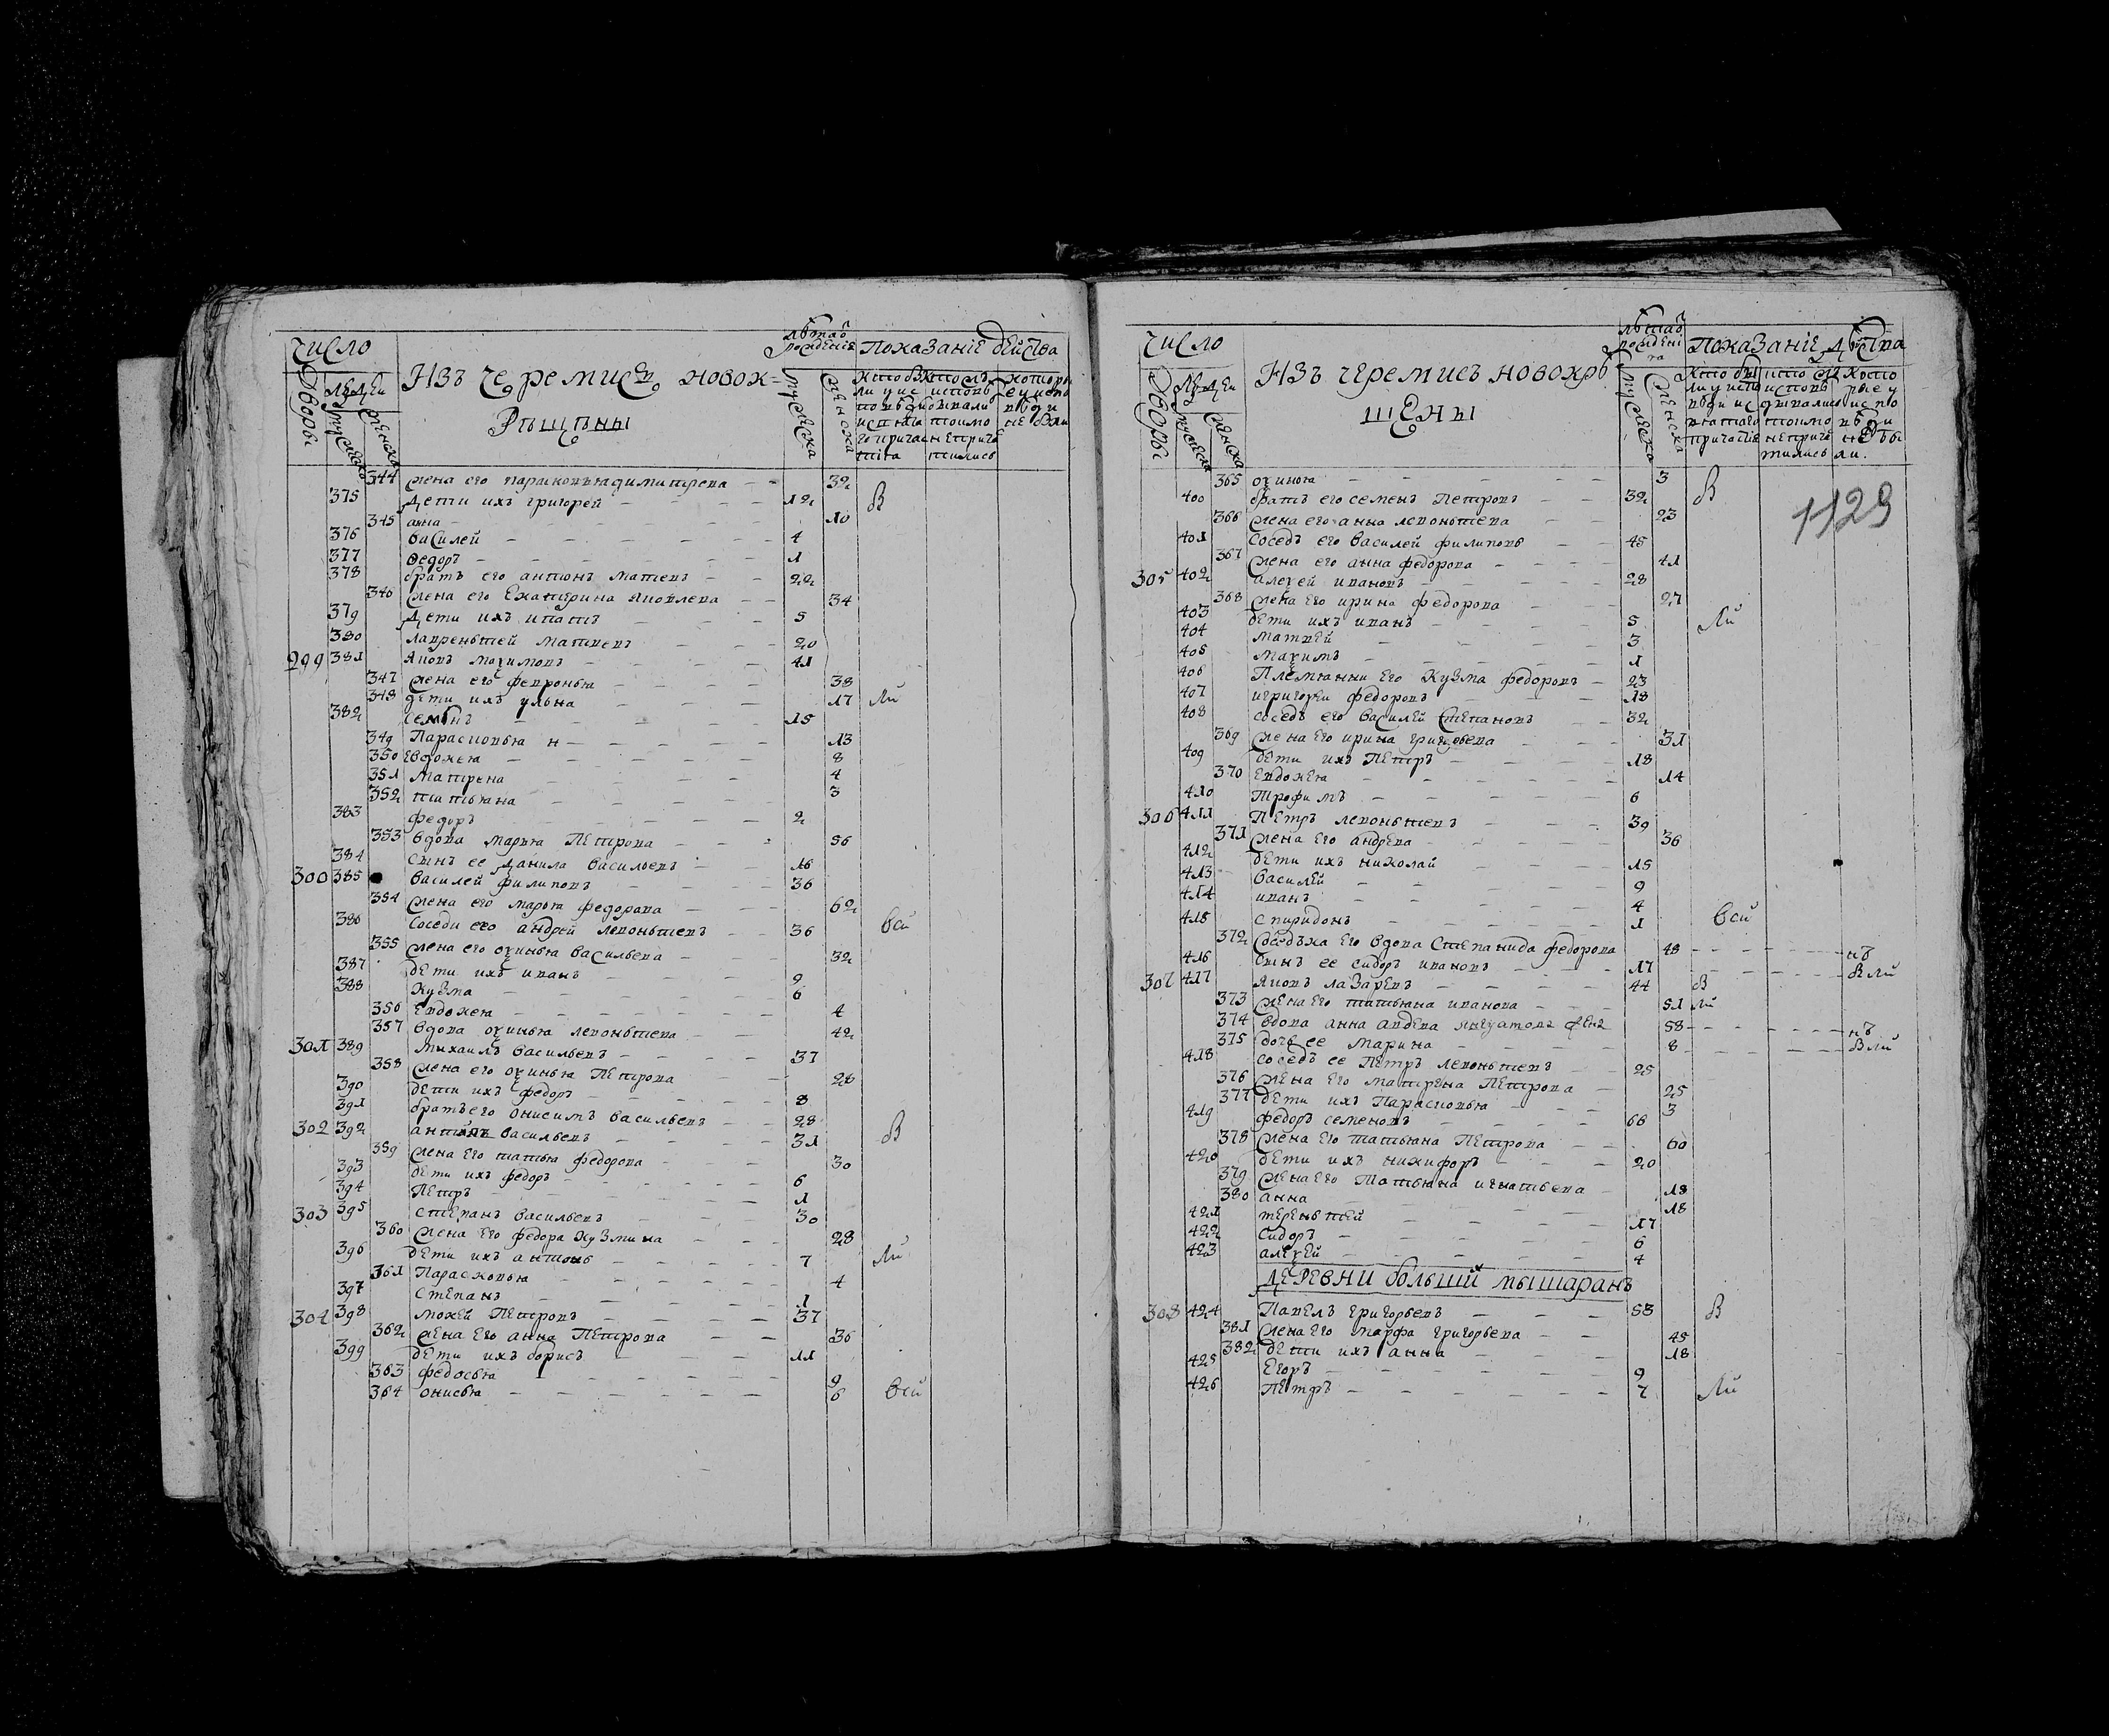 число
Дворы
людеи
мужеска
женска
Изъ черемисъ новок=
рыщены
лѣтаѿ
рожденїѧ
мужеска
женска
показанїе действа
344 жена его парасковья димитрева 32
375 дети ихъ григорей 12 в
345 анна 10
376 василей 4
377 ѳедоръ 1
378 братъ его антонъ матвевъ 22
346 жена его екатерина яковлева 34
379 дети ихъ ипатъ 5
380 лаврентей матвеевъ 20
299 381 яковъ маѯимовъ 41
347 жена его февронья 38
348 дети ихъ ульяна 17 ли
382 семенъ 15
349 парасковья 13
350 евдокея 8
351 матрена 4
352 татьяна 3
383 федоръ 2
353 вдова марья петрова 56
384 сынъ ее данила васильевъ 16
300 385 василей филиповъ 36
354 жена его марья федорова 62
386 соседи его андрей леонтьевъ 36 вси
355 жена его оѯинья васильева 32
387 дети ихъ иванъ 9
388 кузма 6
356 евдокея 4
357 вдова оѯинья леонтьева 42
301 389 михаилъ васильевъ 37
358 жена его оѯинья петрова 28
390 дети ихъ федоръ 8
391 братъ его онисимъ васильевъ 28
302 392 антонъ васильевъ 31 в
359 жена его татьяна федорова 30
393 дети ихъ федоръ 6
394 петръ 1
303 395 степанъ васильевъ 30
360 жена его федора кузмина 28
396 дети ихъ антонъ 7 ли
361 парасковья 4
397 степанъ 1
304 398 мокей петровъ 37
362 жена его анна петрова 36
399 дети ихъ борисъ 11
363 федосья 9
364 онисья 6 вси
число
Дворы
людеи
мужеска
женска
Изъ черемисъ новокрѣ
щены
лѣтаѿ
рожденї
ѧ
мужеска
женска
показанїе действа
365 оѯинья 3
400 братъ его семенъ петровъ 32 в
1129
366 жена его анна леонтьева 23
401 соседъ его василей филиповъ 45
367 жена его анна федорова 41
305 402 алеѯей ивановъ 28
368 жена его ирина федорова 27
403 дети ихъ иванъ 5 ли
404 матвей 3
405 маѯимъ 1
406 племянни его кузма федоровъ 23
407 игригореи федоровъ 18
408 соседъ его василей степановъ 32
369 жена его ирина григорьева 31
409 дети ихъ петръ 18
370 евдокея 14
410 трофимъ 6
306 411 петръ леонтьевъ 39
371 жена его андрева 36
412 дети ихъ николай 15
413 василей 9
414 иванъ 4
415 спиридонъ 1 вси
372 соседъка его вдова степанида федорова 48 нѣ
416 сынъ ее сидоръ ивановъ 17 вли
307 417 яковъ лазаревъ 44 в
373 жена его татьяна иванова 51 ли
374 вдова анна авдева 58 нѣ
375 дочь ее марина 8 вли
418 соседъ ее петръ леонтьевъ 25
376 жена его матрена петрова 25
377 дети ихъ парасковья 3
419 федоръ семеновъ 66
378 жена его татьяна петрова 60
420 дети ихъ никифоръ 20
379 жена его татьяна игнатьева 18
380 анна 18
421 терентей 17
422 сидоръ 6
423 алеѯей 4
деревни болшиѫ мышаранъ
308 424 павелъ григорьевъ 53 в
381 жена его марфа григорьева 45
382 дети ихъ анна 18
425 егоръ 9
426 петръ 7 ли